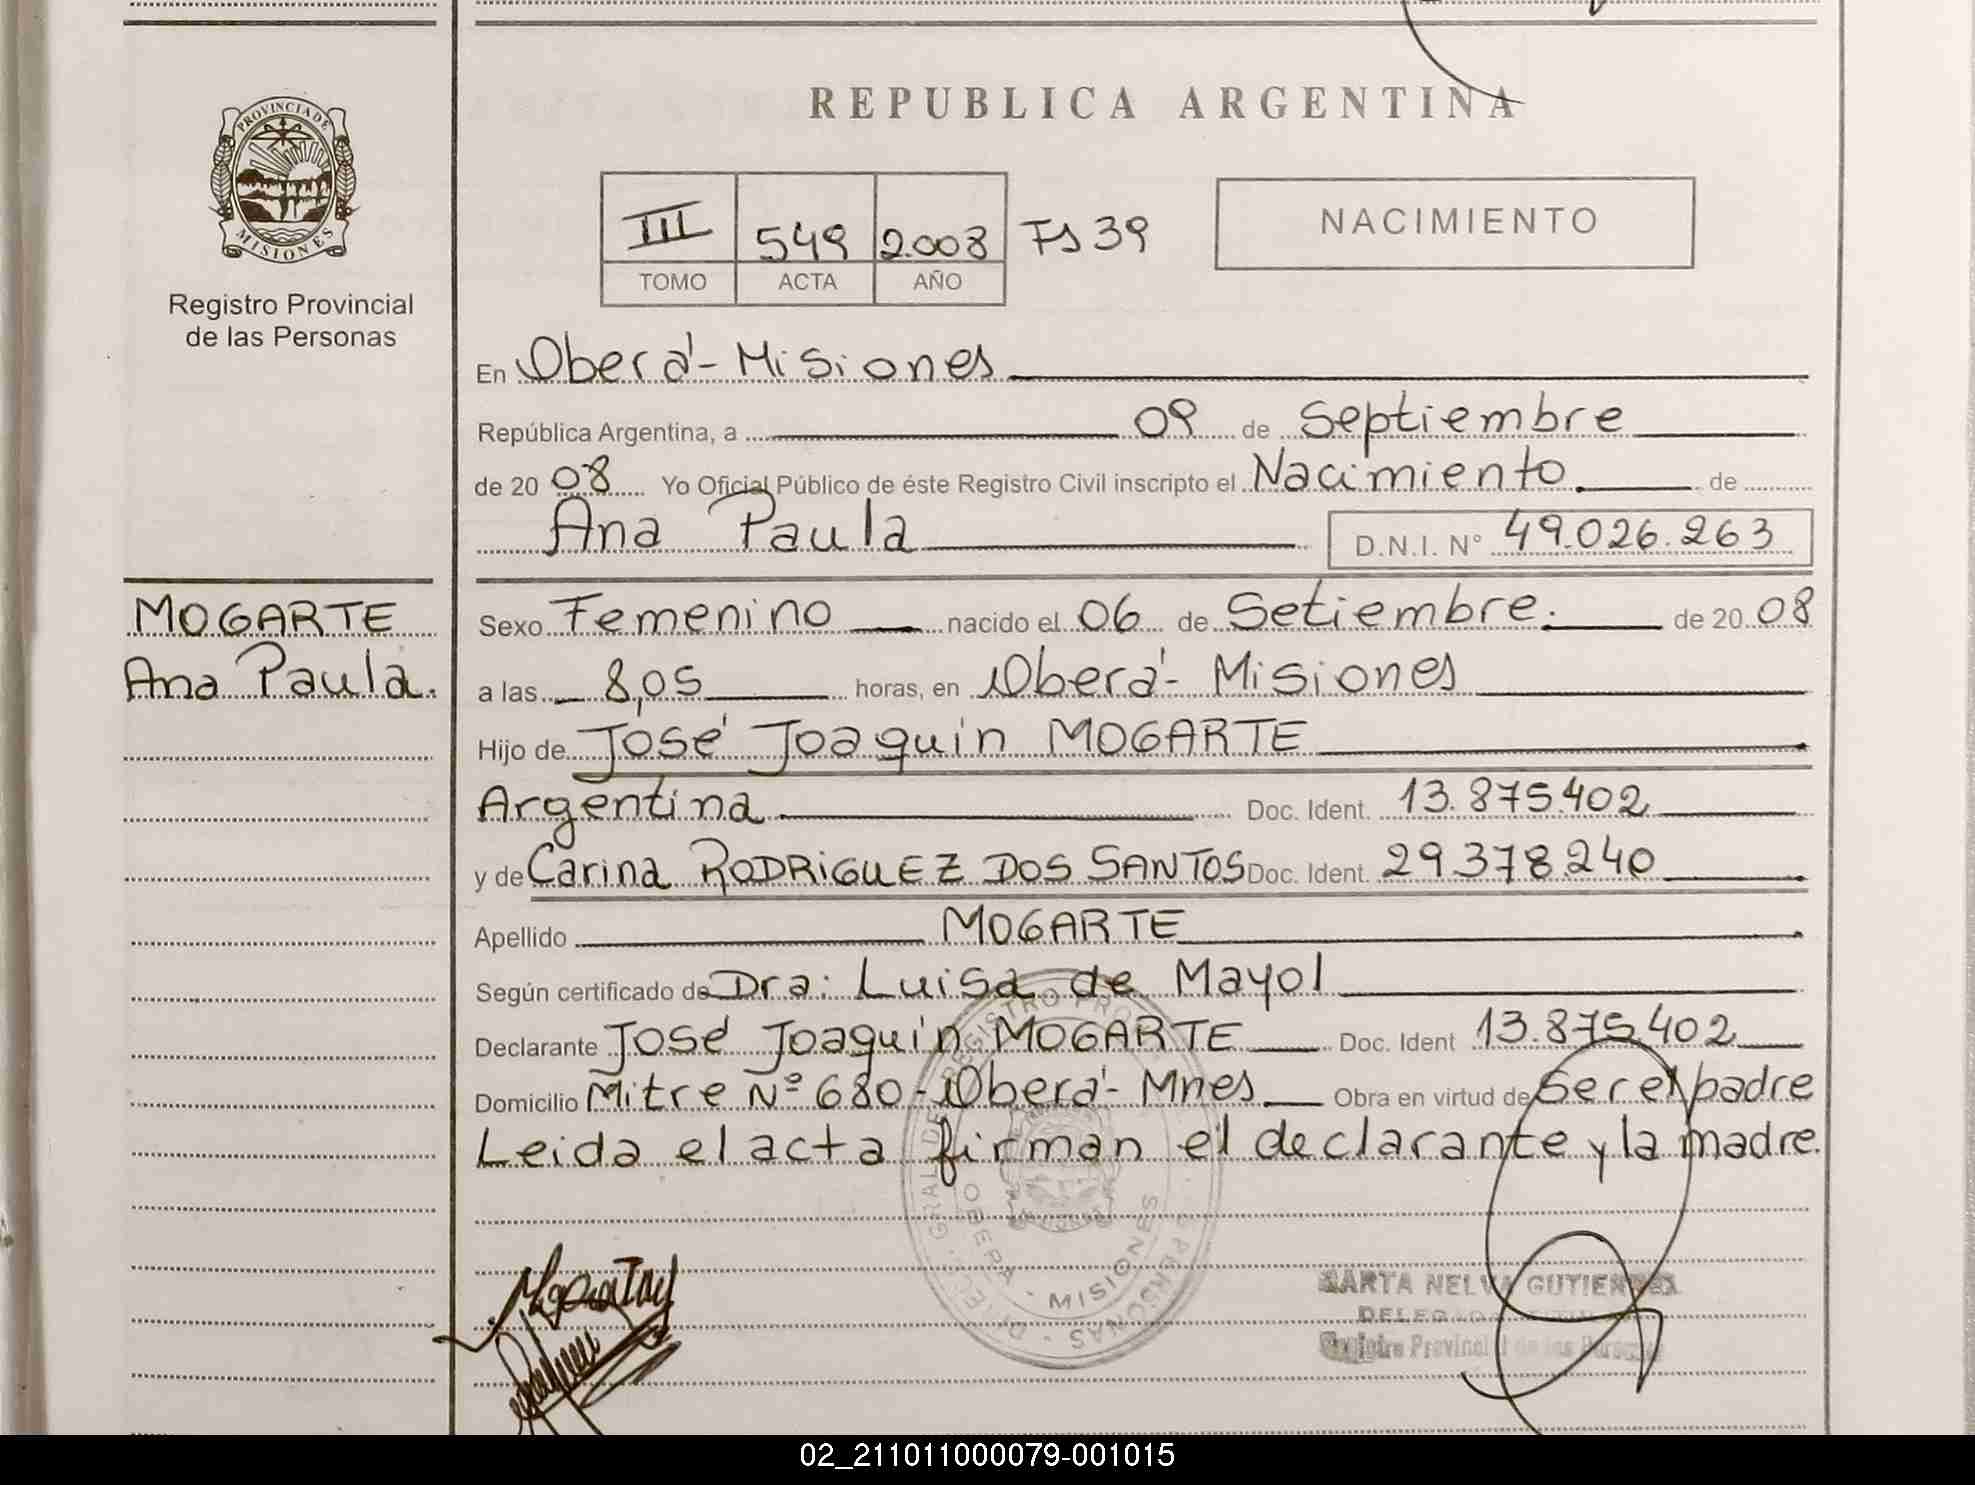 PROVINCIA DE
MISIONES
Registro Provincial
de las Personas
REPUBLICA ARGENTINA
III 549 2.008 Fs 39
TOMO ACTA AÑO
NACIMIENTO
En Oberá - Misiones
República Argentina, a 09 de Septiembre
de 20 08 Yo Oficial Público de éste Registro Civil inscripto el Nacimiento. de
Ana Paula D.N.I. N° 49.026.263
MOGARTE
Ana Paula.
Sexo Femenino nacido el 06 de Setiembre. de 20 08
a las 8,05 horas, en Oberá - Misiones
Hijo de José Joaquín MOGARTE
Argentina Doc. Ident. 13.875.402
y de Carina RODRIGUEZ DOS SANTOS Doc. Ident. 29.378.240
Apellido MOGARTE
Según certificado de Dra: Luisa de Mayol
Declarante José Joaquín MOGARTE Doc. Ident 13.875.402
Domicilio Mitre Nº 680 - Oberá - Mnes Obra en virtud de Ser el padre
Leida el acta firman el declarante y la madre.
MISIONES
NELVA GUTIERREZ
Registro Provincial de las Personas
02_211011000079-001015